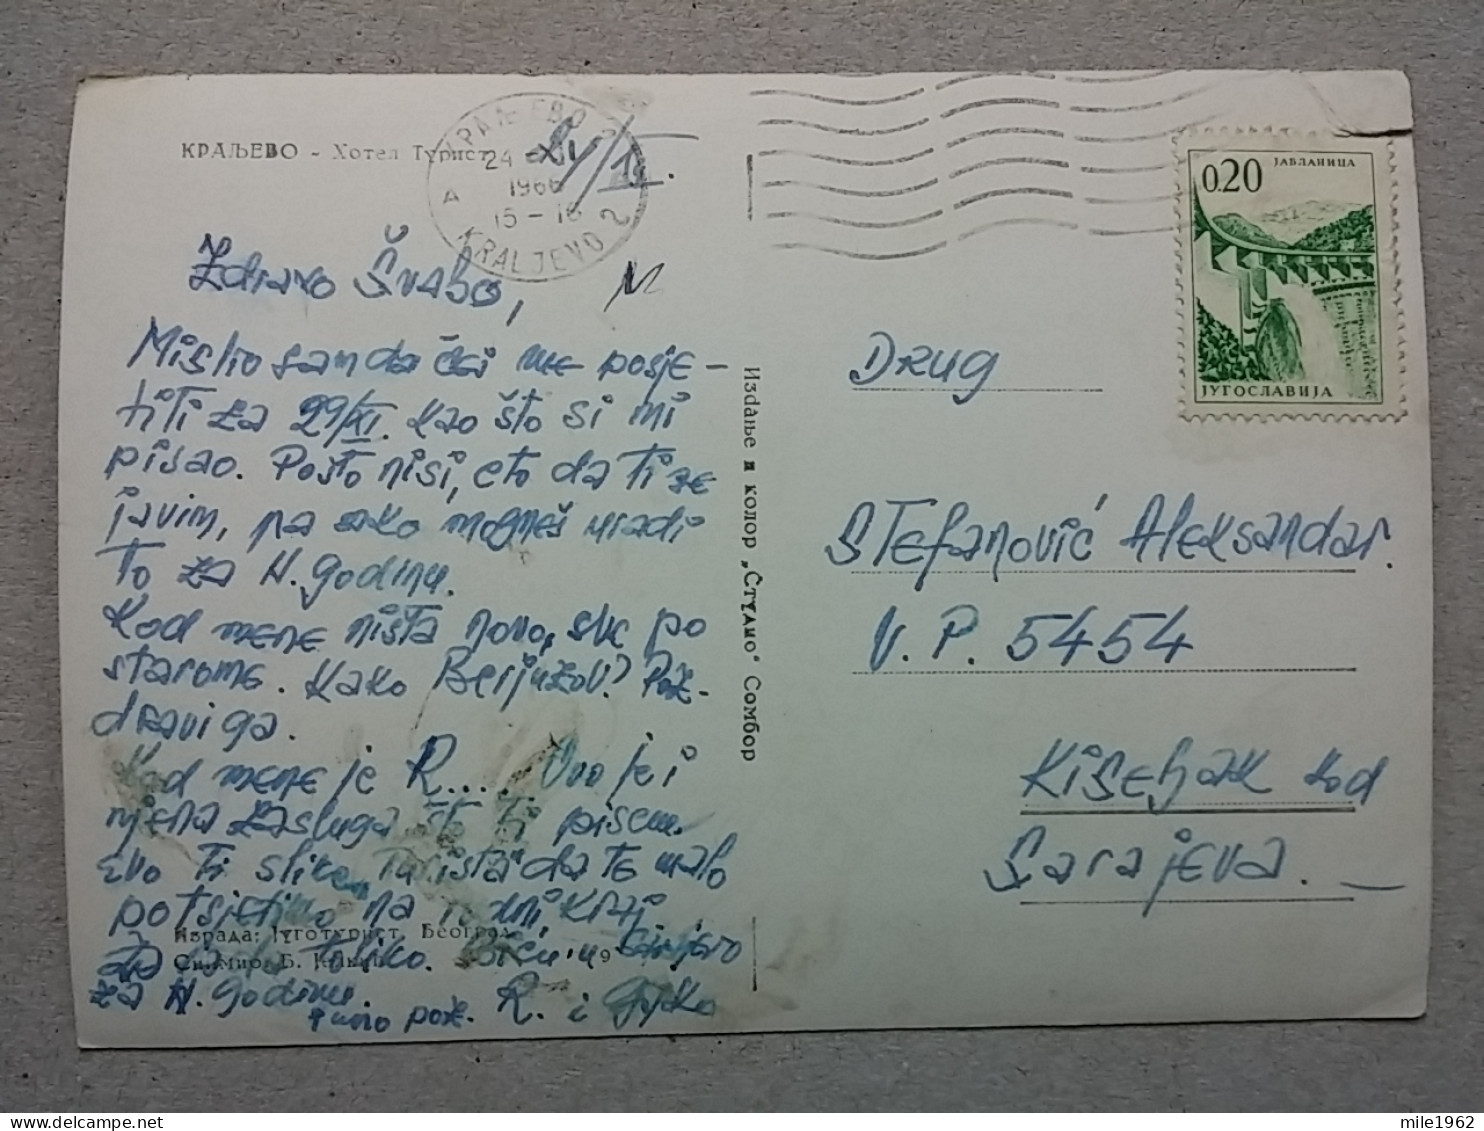 КРАЉЕВО - Хотел Турист
КРАЉЕВО 2
24
1966
15-16
A
KRALJEVO 2
Zdravo Švabo,
Mislio sam da ćeš me posje-
titi za 29/XI. kao što si mi
pisao. Pošto nisi, eto da ti se
javim, pa ako mogneš uradi
to za N. godinu.
Kod mene ništa novo, sve po
starome. Kako Berjuzov? Poz-
dravi ga.
Kod mene je R.... Ovo je i
njena zasluga što ti pišem.
Evo ti slike Turista da te malo
potsjetimo na rodni kraj
Za toliko.
za N. godinu.
Puno poz. R. i
Израда: Југотурист, Београд
Снимио: Б.
9
Издање и колор „Студио“ Сомбор
0.20
ЈАБЛАНИЦА
ЈУГОСЛАВИЈА
Drug
Stefanović Aleksandar.
V.P. 5454
Kiseljak kod
Sarajeva.
mile1962